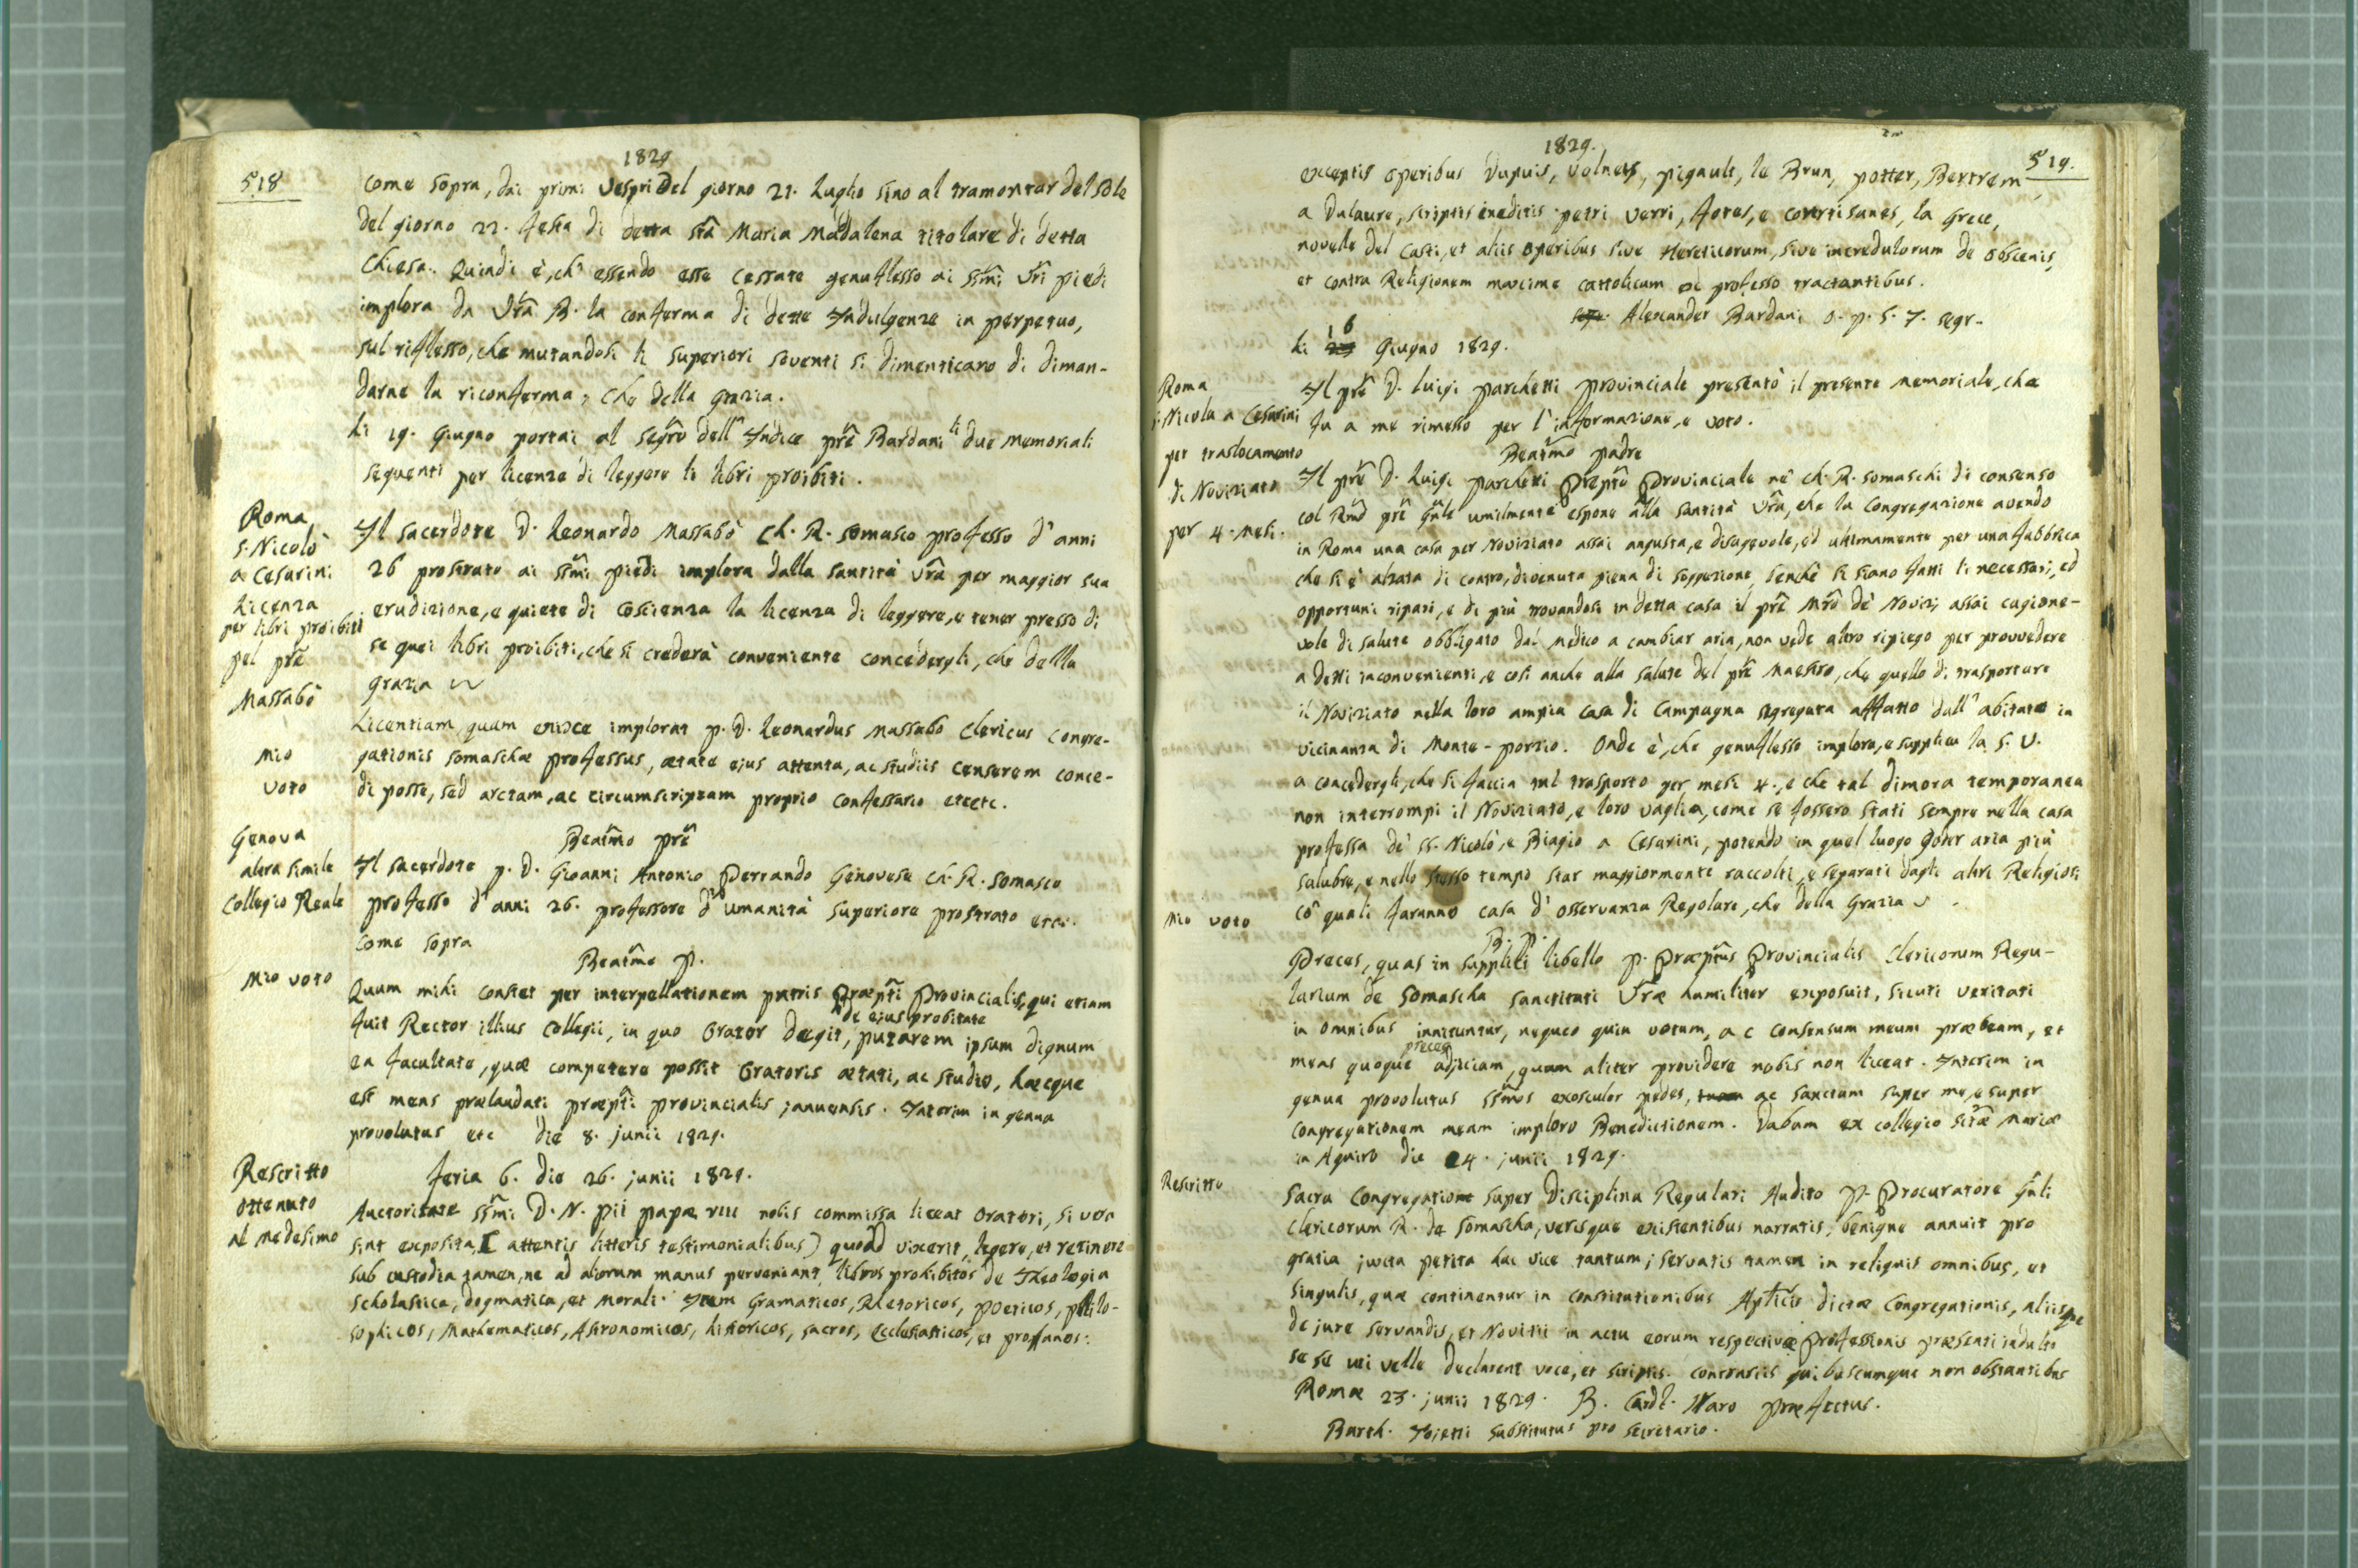 1829
518
come sopra, dai primi Vespri del giorno 21. Luglio sino al tramontar del sole
del giorno 22. festa di detta sta Maria Madalena titolare di detta
Chiesa. Quindi è, ch' essendo esse cessate genuflesso ai ssmi Vri piedi
implora da Vra B. la conferma di dette Indulgenze in perpetuo,
sul riflesso, che mutandosi li superiori soventi si dimenticano di diman-
darne la riconferma, che della grazia.
li 19. Giugno portai al segro dell' Indice pre Bardani li due memoriali
seguenti per licenza di leggere li libri proibiti.
Roma
S. Nicolò
a Cesarini
Licenza
per libri proibiti
pel pre
Massabò
Il sacerdote D. Leonardo Massabò Ch. R. somasco professo d' anni
26 prostrato ai ssmi piedi implora dalla santità Vra per maggior sua
erudizione, e quiete di coscienza la licenza di leggere, e tener presso di
se quei libri proibiti, che si crederà conveniente concedergli, che della
grazia
mio
voto
Licentiam, quam enixe implorat p. D. Leonardus Massabò Clericus congre-
gationis somaschæ professus, ætate ejus attenta, ac studiis censerem conce-
di posse, sed arctam, ac circumscriptam proprio confessario etcetc.
Genova
altra simile
Collegio Reale
Beatmo pre
Il sacerdote p. D. Gioanni Antonio Perrando Genovese Ch. R. somasco
professo d' anni 26. professore d' umanità superiore prostrato etc.
come sopra
mio voto
Beatmo p.
Quum mihi constet per interpellationem patris Præpti Provincialis, qui etiam
fuit Rector illius Collegii, in quo Orator degit, de ejus probitate putarem ipsum dignum
ea facultate, quæ competere possit Oratoris ætati, ac studio, hæcque
est mens prælaudati præpti provincialis januensis. Interim in genua
provolutus etc die 8. junii 1829.
Rescritto
ottenuto
al medesimo
feria 6. die 26. junii 1829.
Auctoritate ssmi D. N. Pii papæ VIII nobis commissa liceat Oratori, si vera
sint exposita, ( attentis litteris testimonialibus) quoad vixerit, legere, et retinere
sub custodia tamen, ne ad aliorum manus perveniant, libros prohibitos de Theologia
scholastica, dogmatica, et Morali. Item Gramaticos, Rhetoricos, poeticos, philo-
sophicos, Mathematicos, Astronomicos, historicos, sacros, Ecclesiasticos, et profanos:
1829.
519.
exceptis operibus Dupuis, Volneis, pigault, le Brun, potter, Bertrem
a Dulaure, scriptis ineditis petri Verri, fotes, e covrtisanes, la Grece,
novelle del Casti, et aliis operibus sive Hereticorum, sive incredulorum de obscenis,
et contra Religionem maxime cattolicam ex professo tractantibus.
Alexander Bardani O. p. S. T. segr.
li 16 Giugno 1829.
Roma
S. Nicola a Cesarini
per traslocamento
di Noviziato
per 4. mesi.
Il pre D. Luigi Parchetti Provinciale presentò il presente memoriale, che
fu a me rimesso per l' informazione, e voto.
Beatmo padre
Il pre D. Luigi Parchetti Præpto Provinciale ne' Ch. R. somaschi di consenso
col Rmo pre Gnle umilmente espone alla santità Vra, che la Congregazione avendo
in Roma una casa per Noviziato assai angusta, e disagevole, ed ultimamente per una fabbrica
che si è alzata di contro, divenuta piena di soggezione, benchè si siano fatti li necessari, ed
opportuni ripari, e di più trovandosi in detta casa il pre Mro de' Novizi assai cagione-
vole di salute obbligato dal medico a cambiar aria, non vede altro ripiego per provvedere
a detti inconvenienti, e così anche alla salute del pre Maestro, che quello di trasportare
il Noviziato nella loro ampia casa di Campagna segregata affatto dall' abitato in
vicinanza di Monte-porzio. Onde è, che genuflesso implora, e supplica la S. V.
a concedergli, che si faccia tal trasporto per mesi 4., e che tal dimora temporanea
non interrompi il Noviziato, e loro vaglia, come se fossero stati sempre nella casa
professa de' SS. Nicolò, e Biagio a Cesarini, potendo in quel luogo goder aria più
salubre, e nello stesso tempo star maggiormente raccolti, e separati dagli altri Religiosi
co' quali faranno casa d' osservanza Regolare, che della Grazia
mio voto
B. p.
Preces, quas in supplici libello p. Præptus Provincialis Clericorum Regu-
larium de Somascha sanctitati Vræ humiliter exposuit, sicuti veritati
in omnibus innituntur, nequeo quin votum, ac consensum meum præbeam, et
meas quoque preces adjiciam, quum aliter providere nobis non liceat. Interim in
genua provolutus ssmos exosculor pedes, ac sanctam super me, e super
congregationem meam imploro Benedictionem. Dabam ex collegio stæ Mariæ
in Aquiro die 24. junii 1829.
Rescritto
Sacra Congregatione super Disciplina Regulari Audito P. Procuratore Gnli
Clericorum R. de Somascha, verisque existentibus narratis, benigne annuit pro
gratia juxta petita hac vice tantum; servatis tamen in reliquis omnibus, et
singulis, quæ continentur in constitutionibus Aplicis dictæ Congregationis, aliisque
de jure servandis, et Novitii in actu eorum respectivæ professionis præsenti indulto
se se uti velle declarent voce, et scriptis. contrariis quibuscumque non obstantibus
Romæ 23. junii 1829. B. Cardl. Naro præfectus.
Barth. substitutus pro secretario.